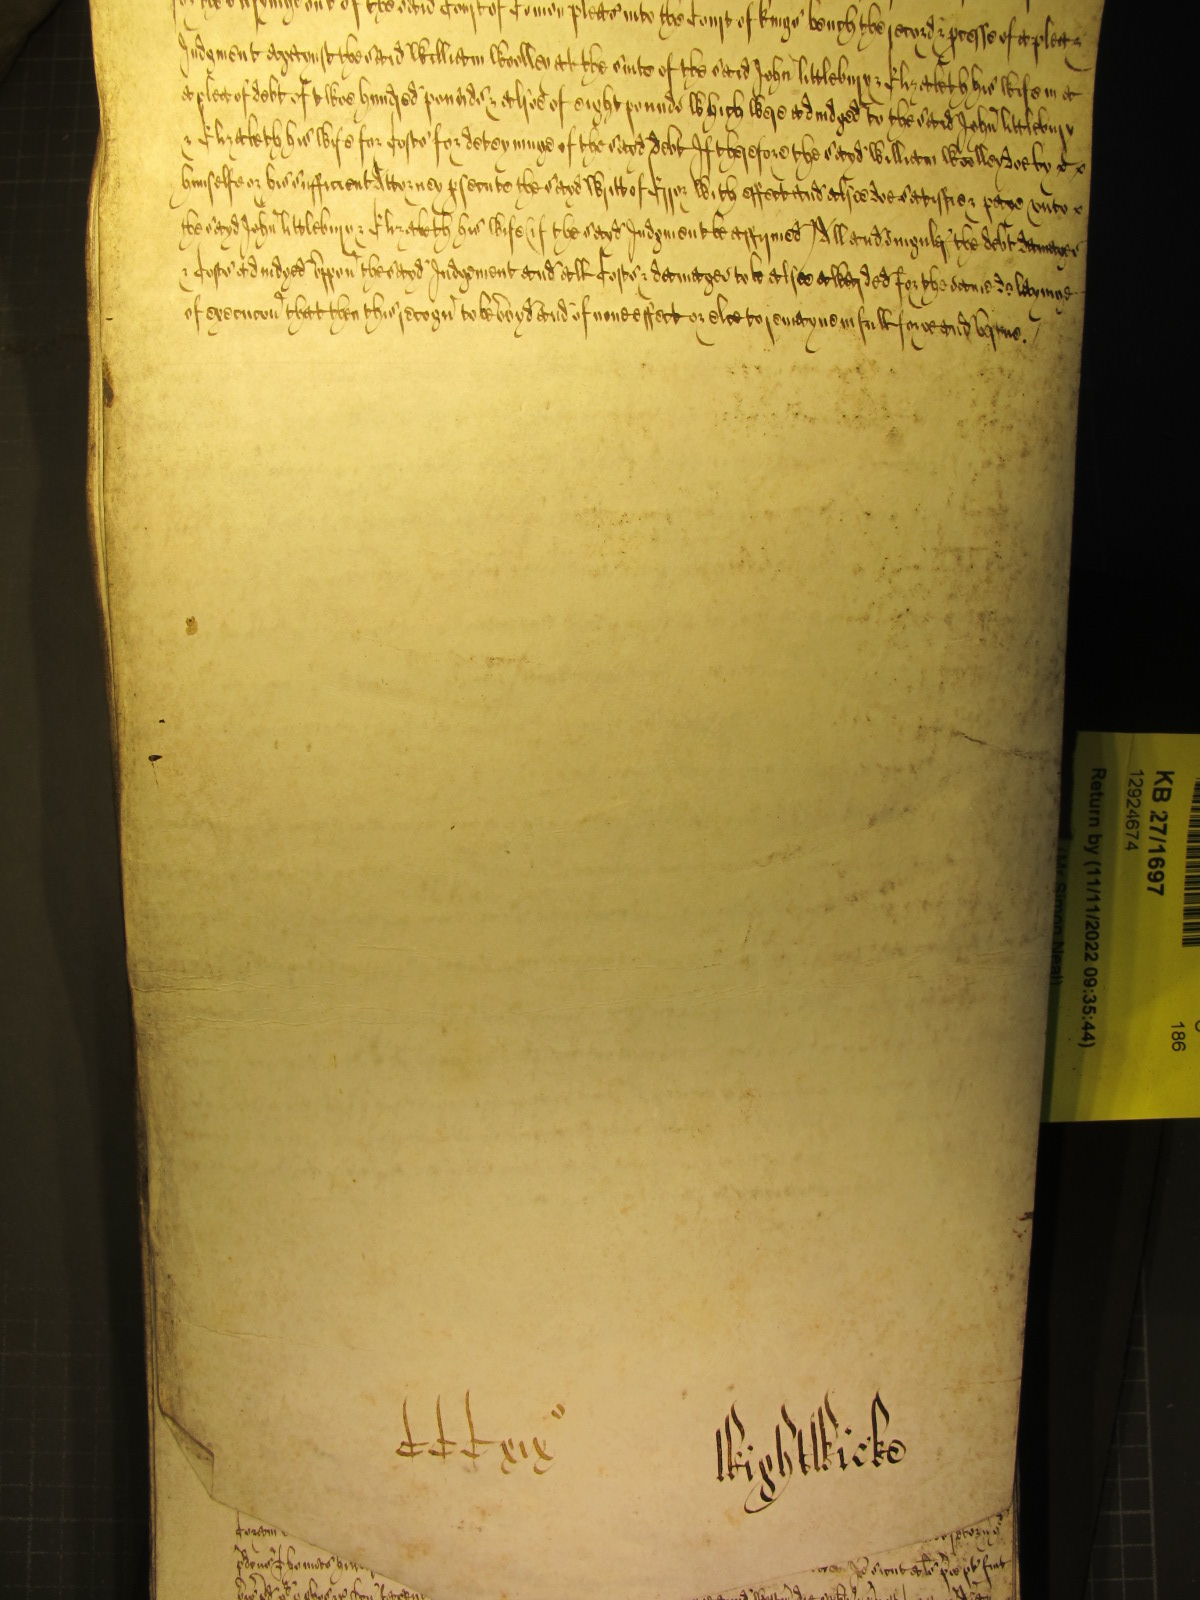 for the of the said Court of Comon pleas into the Court of kings bench the record & processe of a plea &
Judgment against the said William Woolley at the suite of the said John littlebury & Elizabeth his wife in a
a plea of debt of twoe hundred pounds & alsoe of eight pounds which were adiudged to the said John littlebury
& Elizabeth his wife for Costs for deteyninge of the sayd debt If therefore the sayd William Woolley doe by
himselfe or his sufficient Attorney psecute the sayd writt of Error with effect and alsoe doe satisfie & paye vnto
the sayd John littlebury & Elizabeth his wife (if the sayd Judgment be affirmed) All and singuler the debt damages
& Costs adiudged vppon the sayd Judgment and all Costs & damages to be alsoe awarded for the same delayinge
of execucon that then this recogn to be voyd and of none effect or else to remayne in full force and vertue.
tttxix
WightWicke
KB 27/1697
12924674
Return by (11/11/2022 09:35:44)
(Mr Simon Neal)
186
Coram